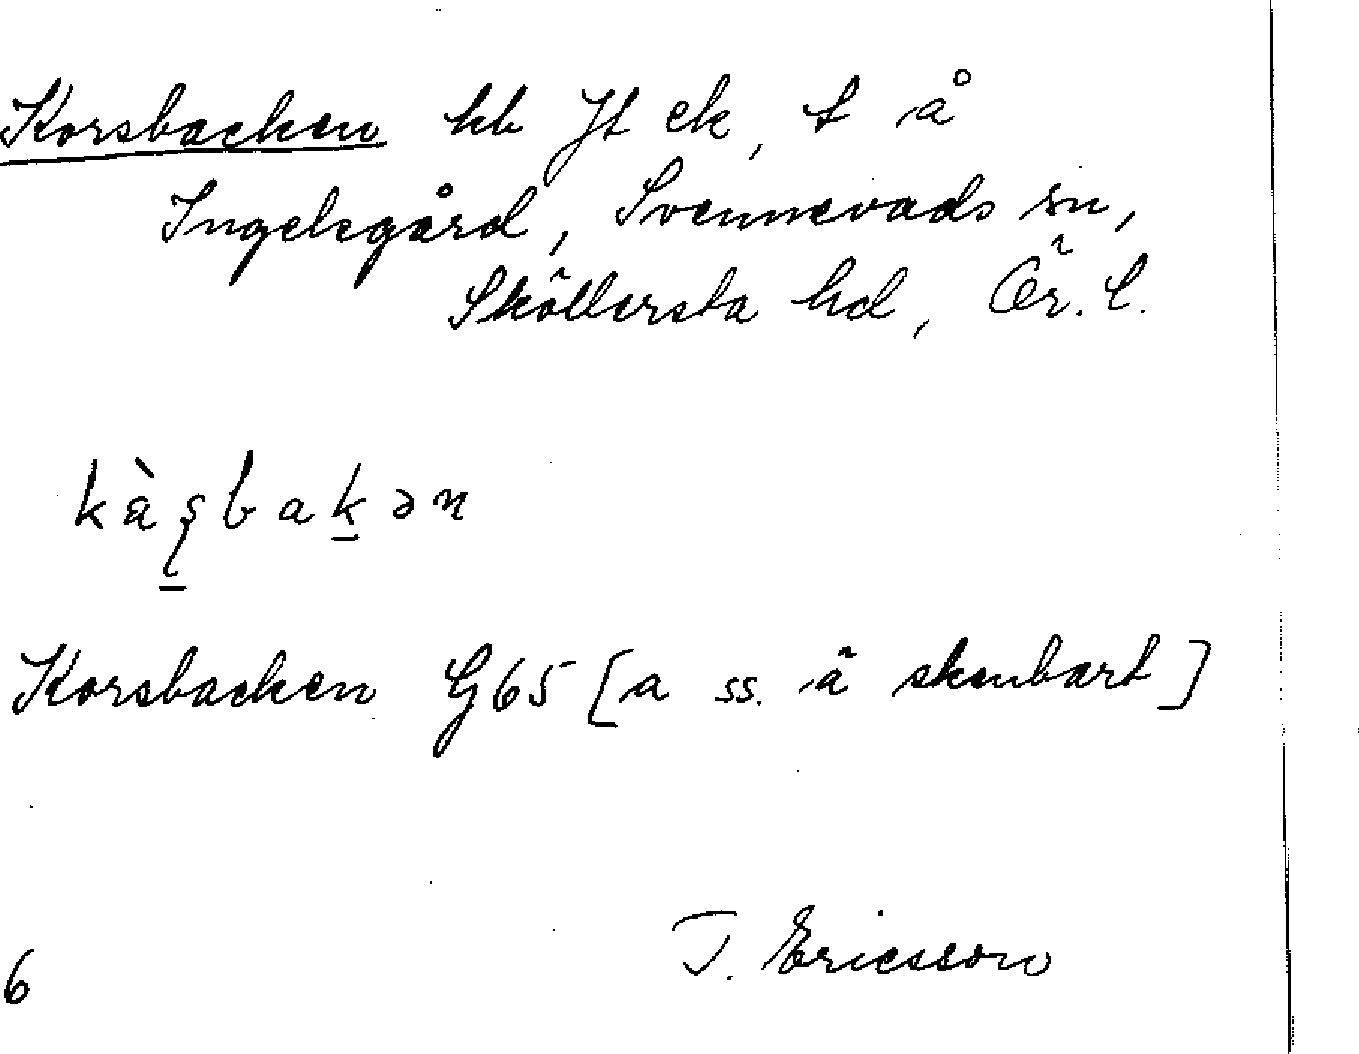 Korsbacken hb Jt ek, t å
Ingelsgård, Svennevads sn,
Sköllersta hd, Ör. l.
kàʂbak̠ən
Korsbacken G65 [a ss. ä skenbart]
T. Ericsson
6